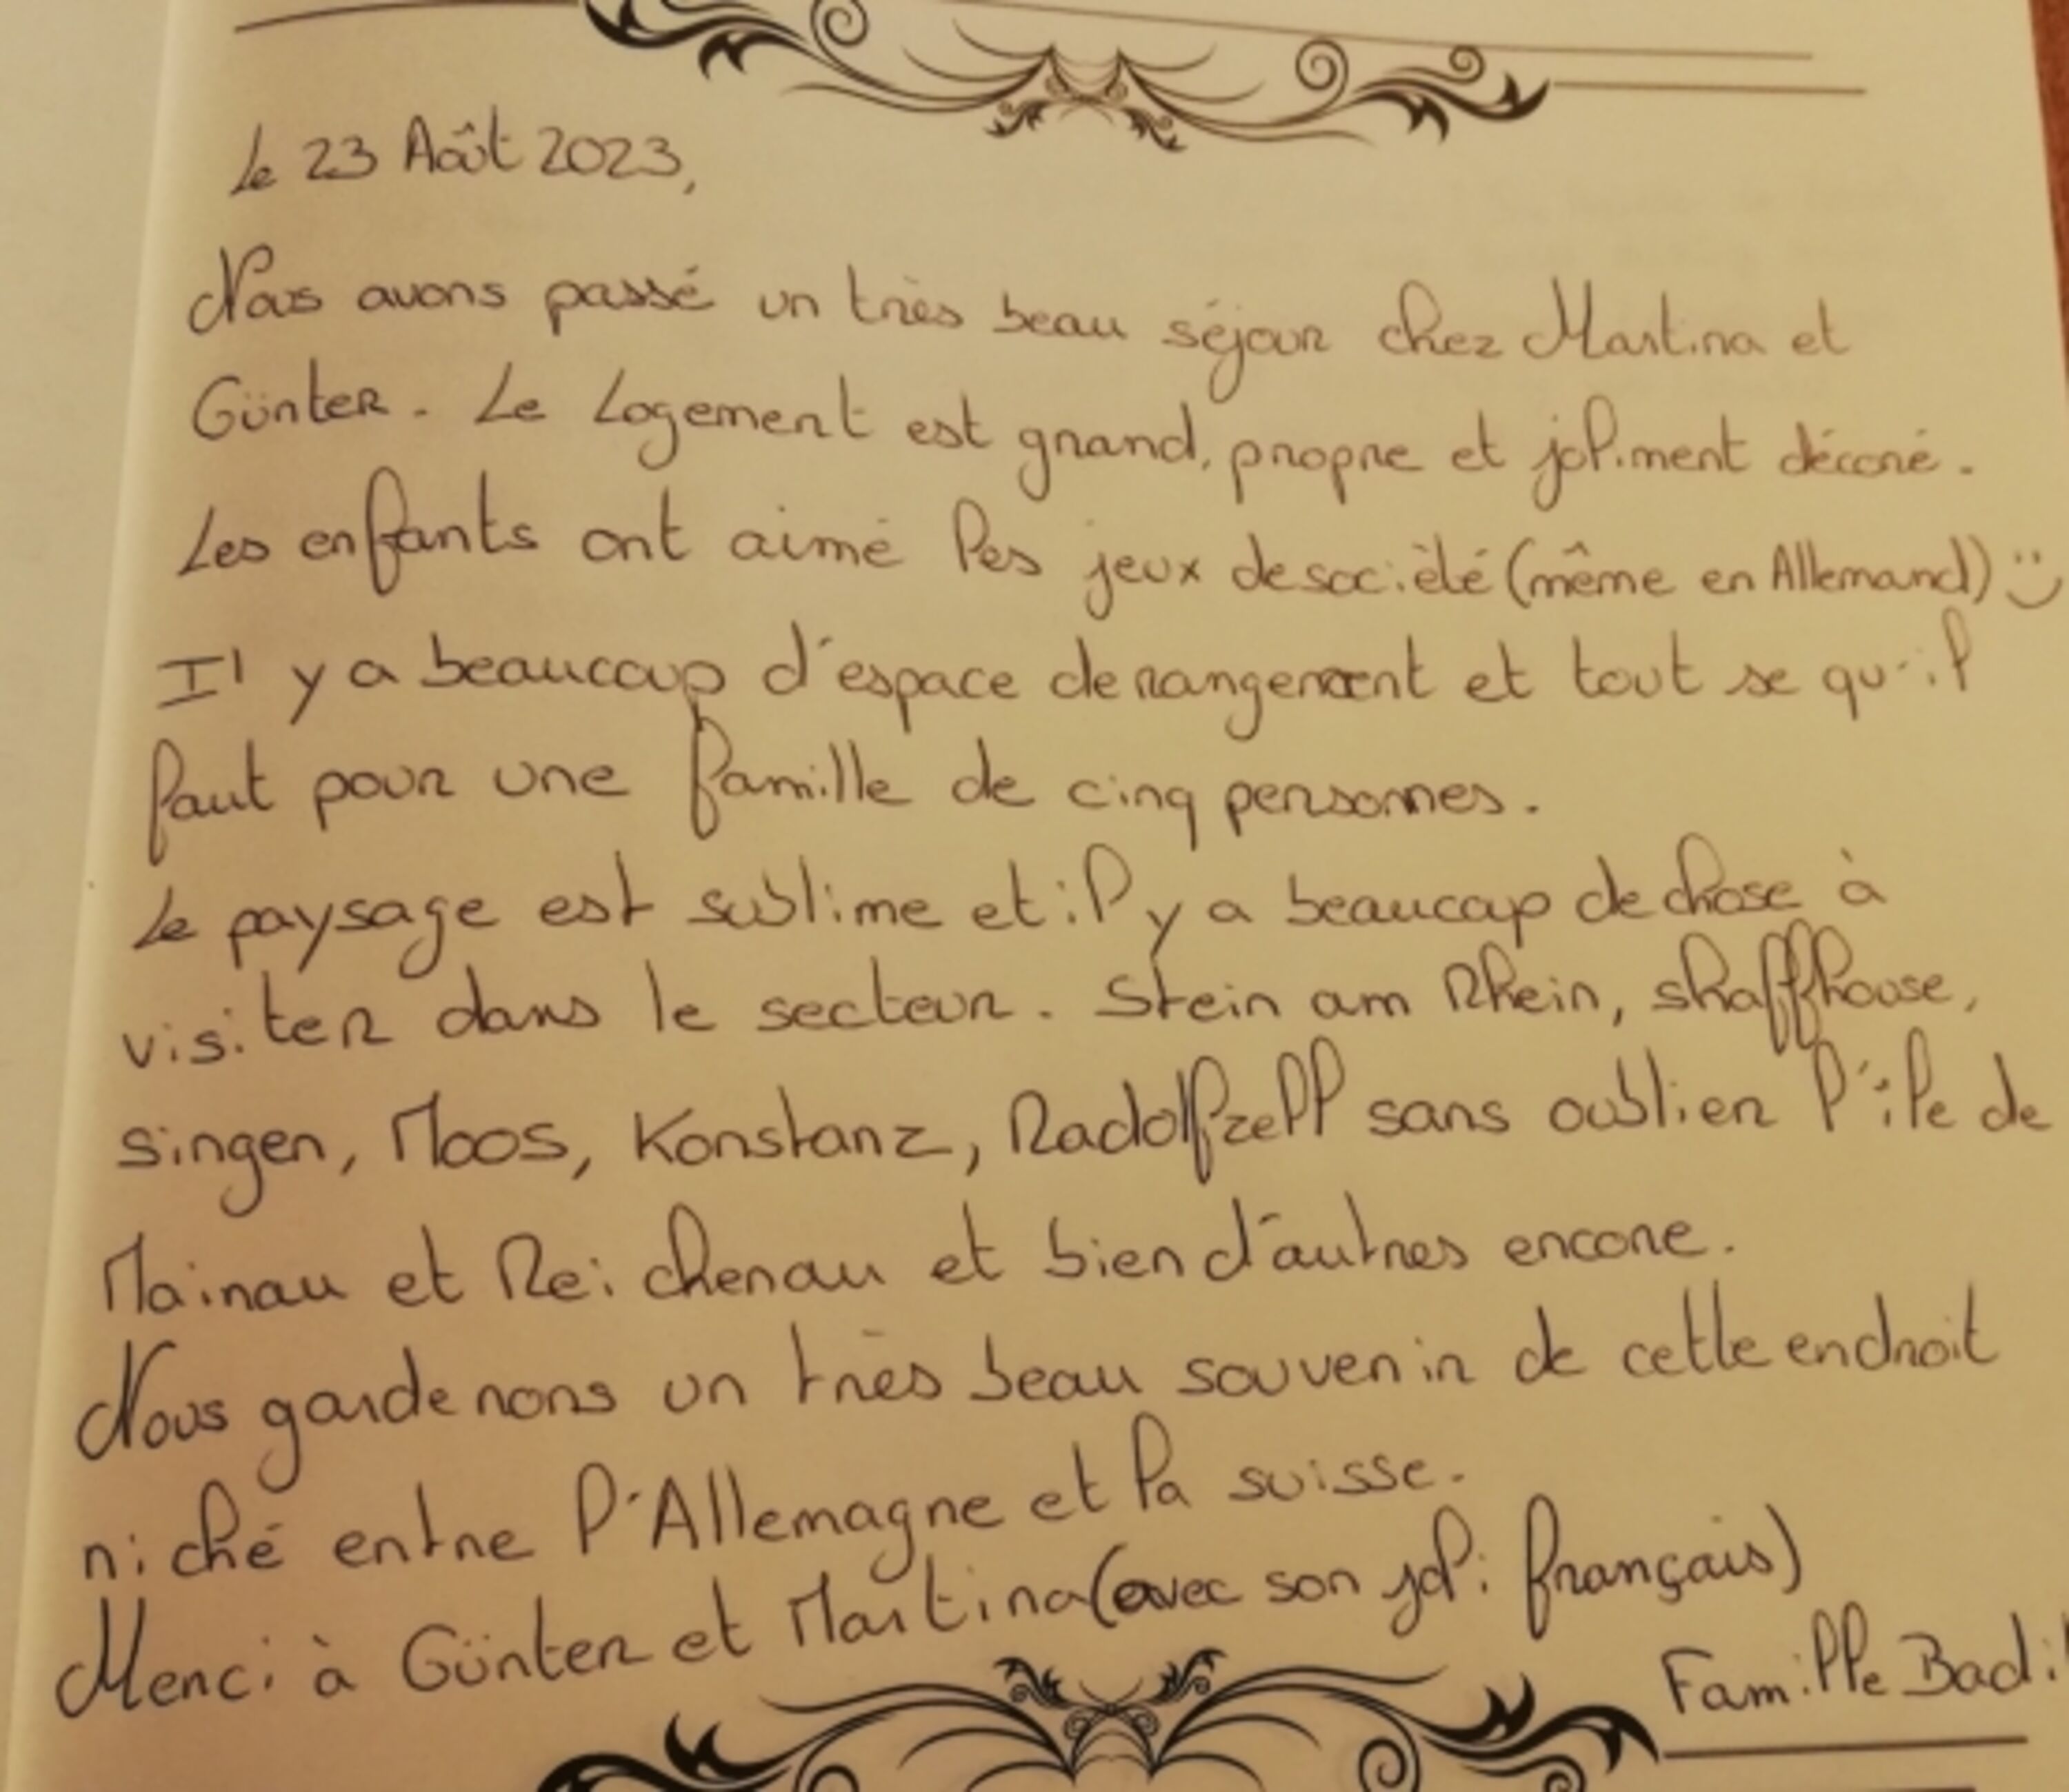 Le 23 Août 2023,
Nous avons passé un très beau séjour chez Martina et
Günter. Le Logement est grand, propre et joliment décoré.
Les enfants ont aimé les jeux de socièté (même en Allemand) :)
Il y a beaucoup d'espace de rangement et tout se qu'il
faut pour une famille de cinq personnes.
Le paysage est sublime et il y a beaucoup de chose à
visiter dans le secteur. Stein am Rhein, shaffhouse,
singen, Moos, Konstanz, Radolfzell sans oublier l'île de
Mainau et Reichenau et bien d'autres encore.
Nous garderons un très beau souvenir de cette endroit
niché entre l'Allemagne et la suisse.
Merci à Günter et Martina (avec son joli français)
Famille